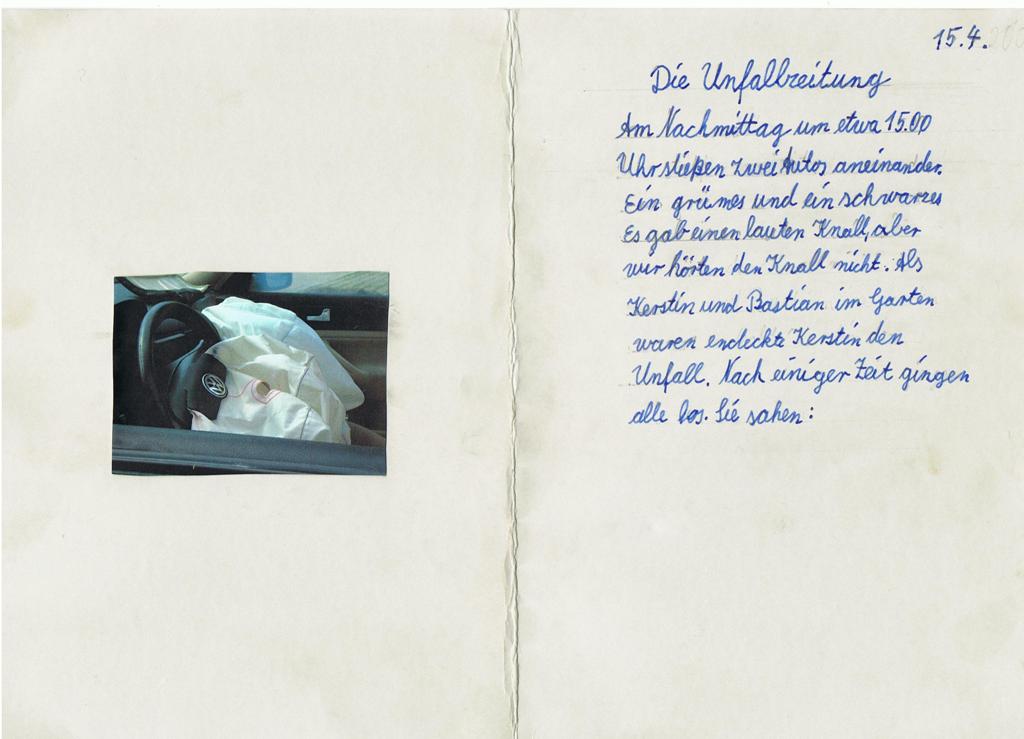 15.4.
Die Unfallzeitung
Am Nachmittag um etwa 15.00
Uhr stießen zwei Autos aneinander.
Ein grünes und ein schwarzes
Es gab einen lauten Knall, aber
wir hörten den Knall nicht. Als
Kerstin und Bastian im Garten
waren endeckte Kerstin den
Unfall. Nach einiger Zeit gingen
alle los. Sie sahen: